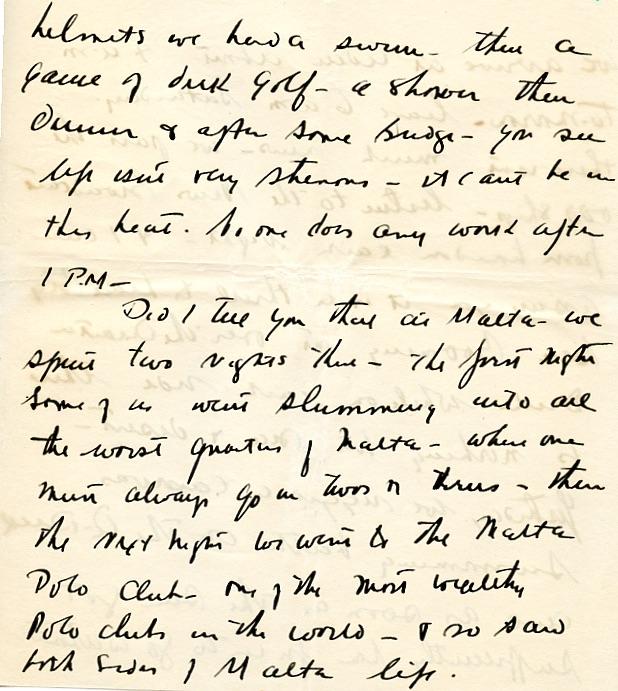 helmets we had a swim - then a
game of deck golf - a shower then
Dinner & after some bridge - you see
life isn't very strenuous - it can't be in
this heat. No one does any work after
1 P.M -
Did I tell you that at Malta - we
spent two nights there - the first night
some of us went slumming into all
the worst quarters of Malta - where one
must always go in twos or threes - then
the next night we went to the Malta
Polo Club - one of the most wealthy
Polo clubs in the world - & so saw
both sides of Malta life.